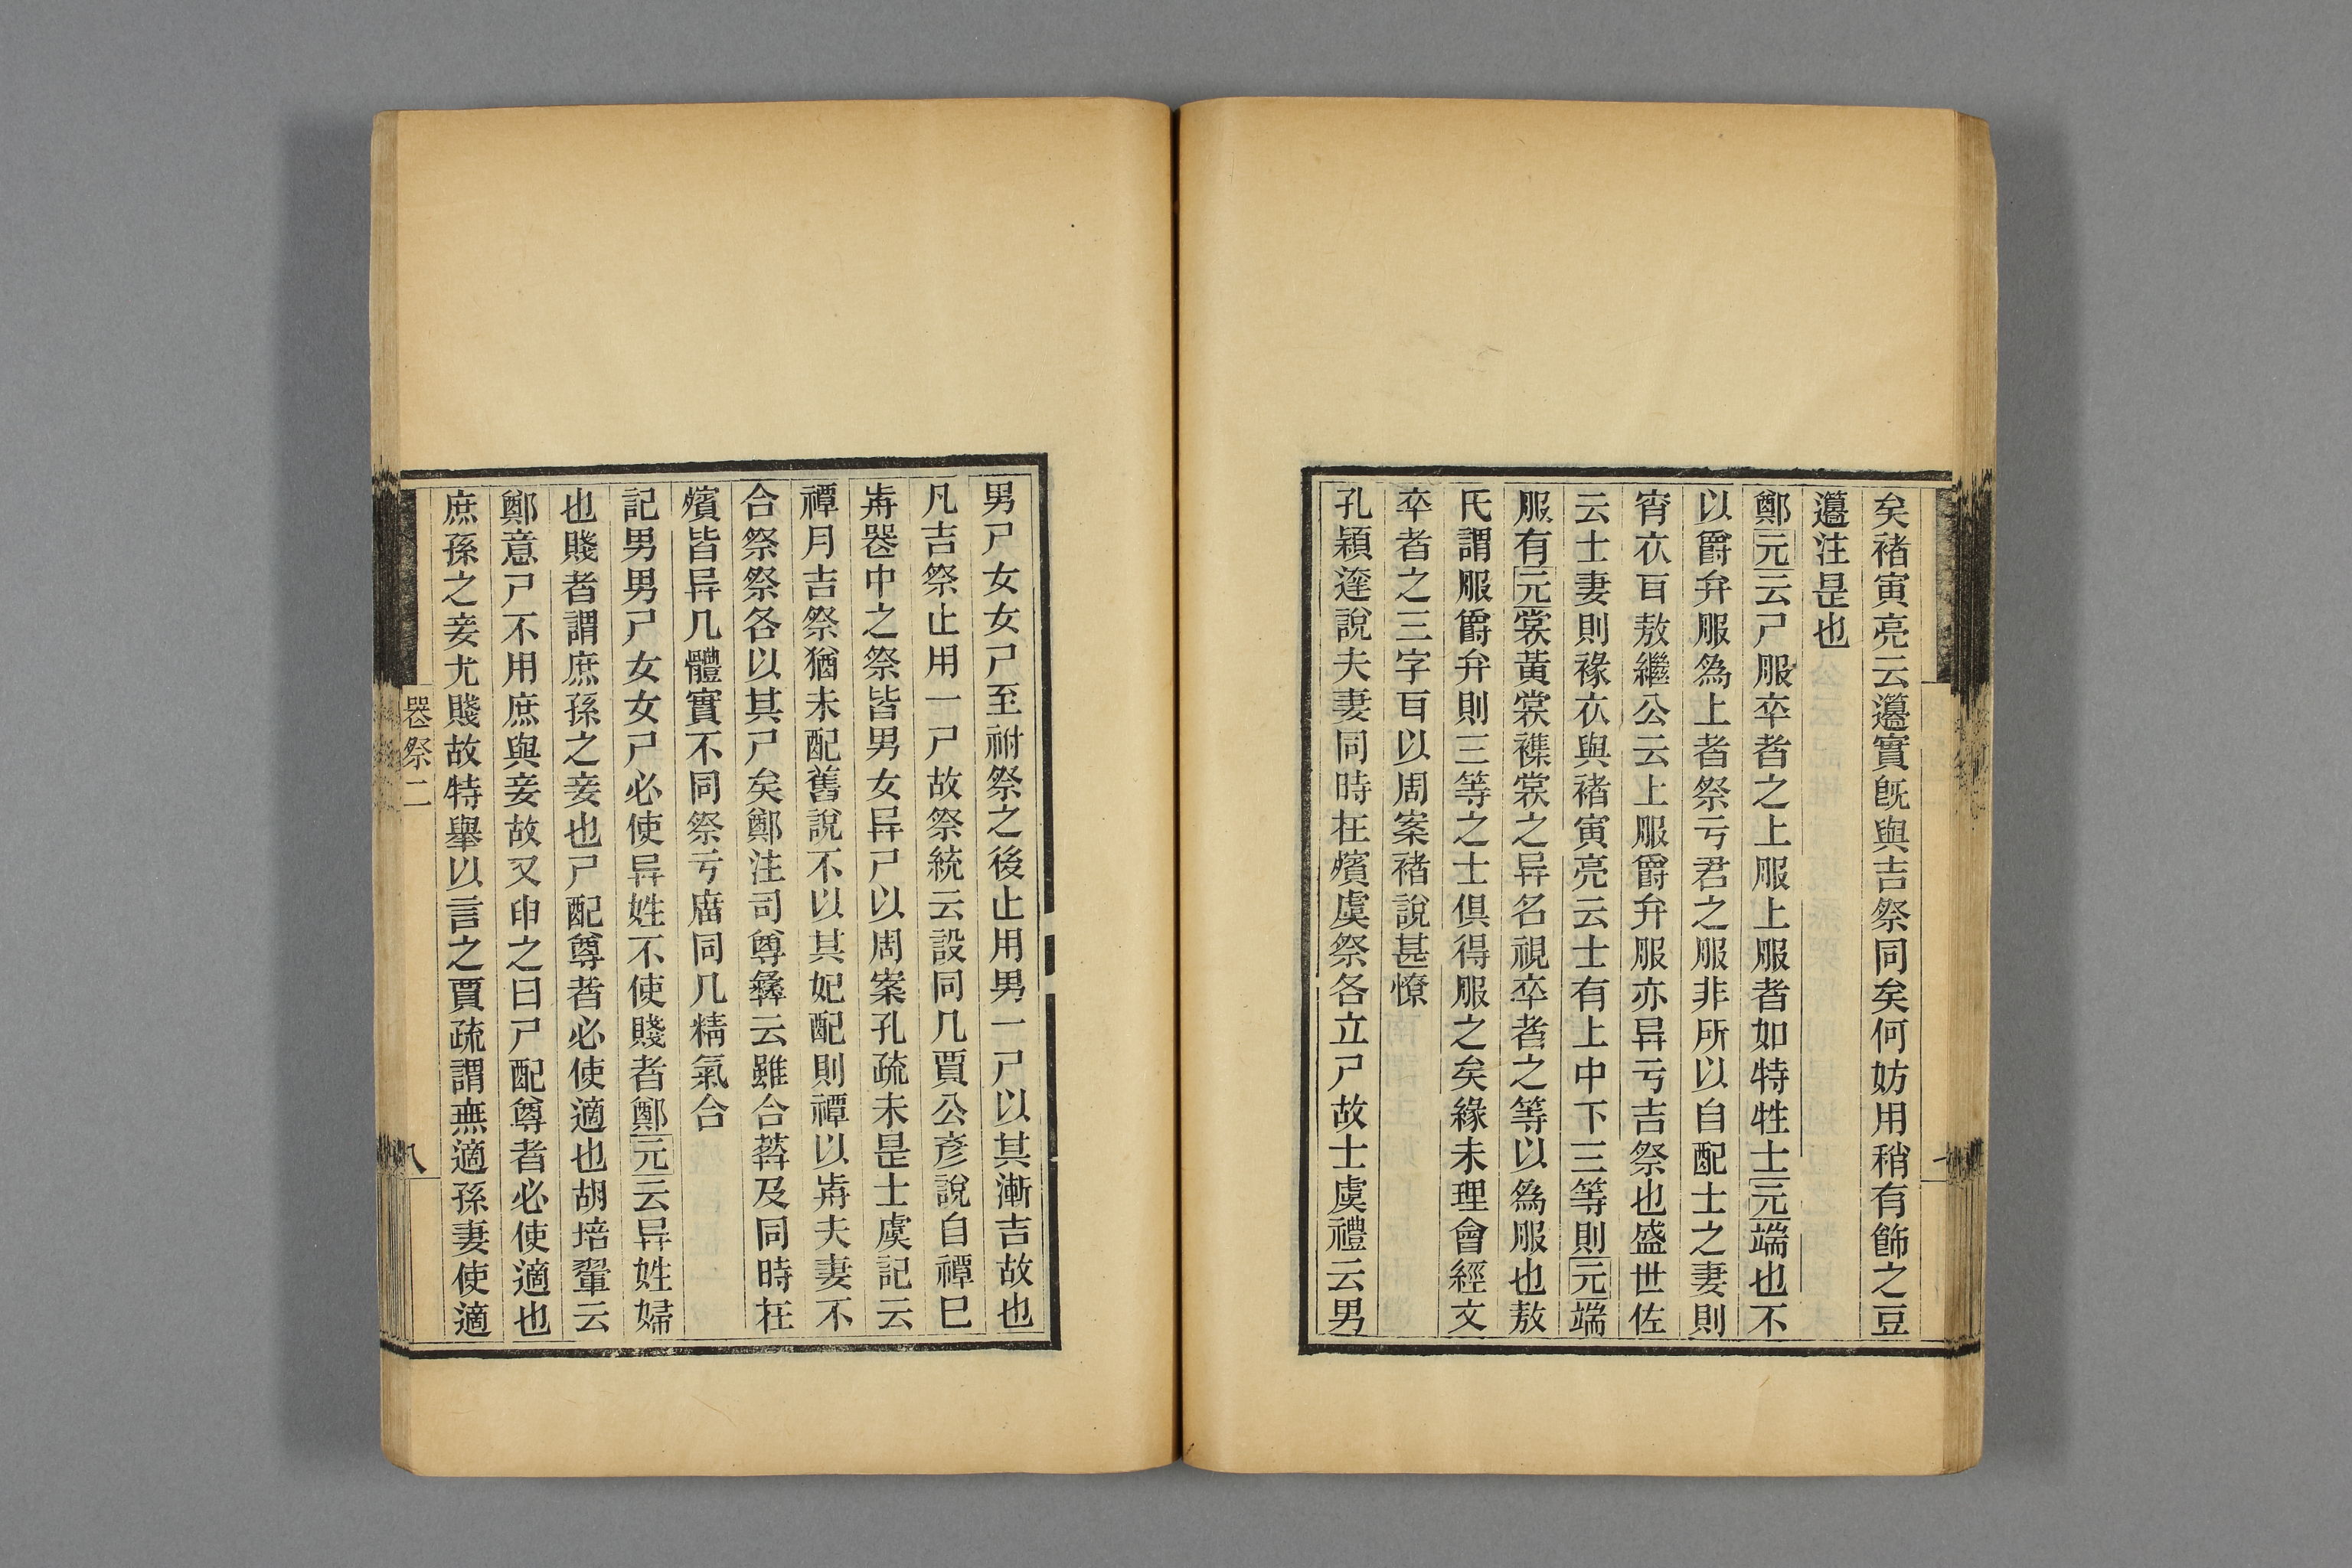 矣褚寅亮云籩實旣與吉祭同矣何妨用稍有飾之豆
籩注是也
鄭元云尸服卒者之上服上服者如特牲士元端也不
以爵弁服爲上者祭亏君之服非所以自配士之妻則
宵衣百敖繼公云上服爵弁服亦异亏吉祭也盛世佐
云士妻則褖衣與褚寅亮云士有上中下三等則元端
服有元裳黃裳襍裳之异名視卒者之等以爲服也敖
氏謂服爵弁則三等之士俱得服之矣緣未理會經文
卒者之三字百以周案褚說甚憭
孔穎達說夫妻同時在殯虞祭各立尸故士虞禮云男
男尸女女尸至祔祭之後止用男一尸以其漸吉故也
凡吉祭止用一尸故祭統云設同几賈公彥說自禫已
歬喪中之祭皆男女异尸以周案孔疏未是士虞記云
禫月吉祭猶未配舊說不以其妃配則禫以歬夫妻不
合祭祭各以其尸矣鄭注司尊彝云雖合葬及同時在
殯皆异几體實不同祭亏廟同几精氣合
記男男尸女女尸必使异姓不使賤者鄭元云异姓婦
也賤者謂庶孫之妾也尸配尊者必使適也胡培翬云
鄭意尸不用庶與妾故又申之曰尸配尊者必使適也
庶孫之妾尤賤故特舉以言之賈疏謂無適孫妻使適
喪祭二
八